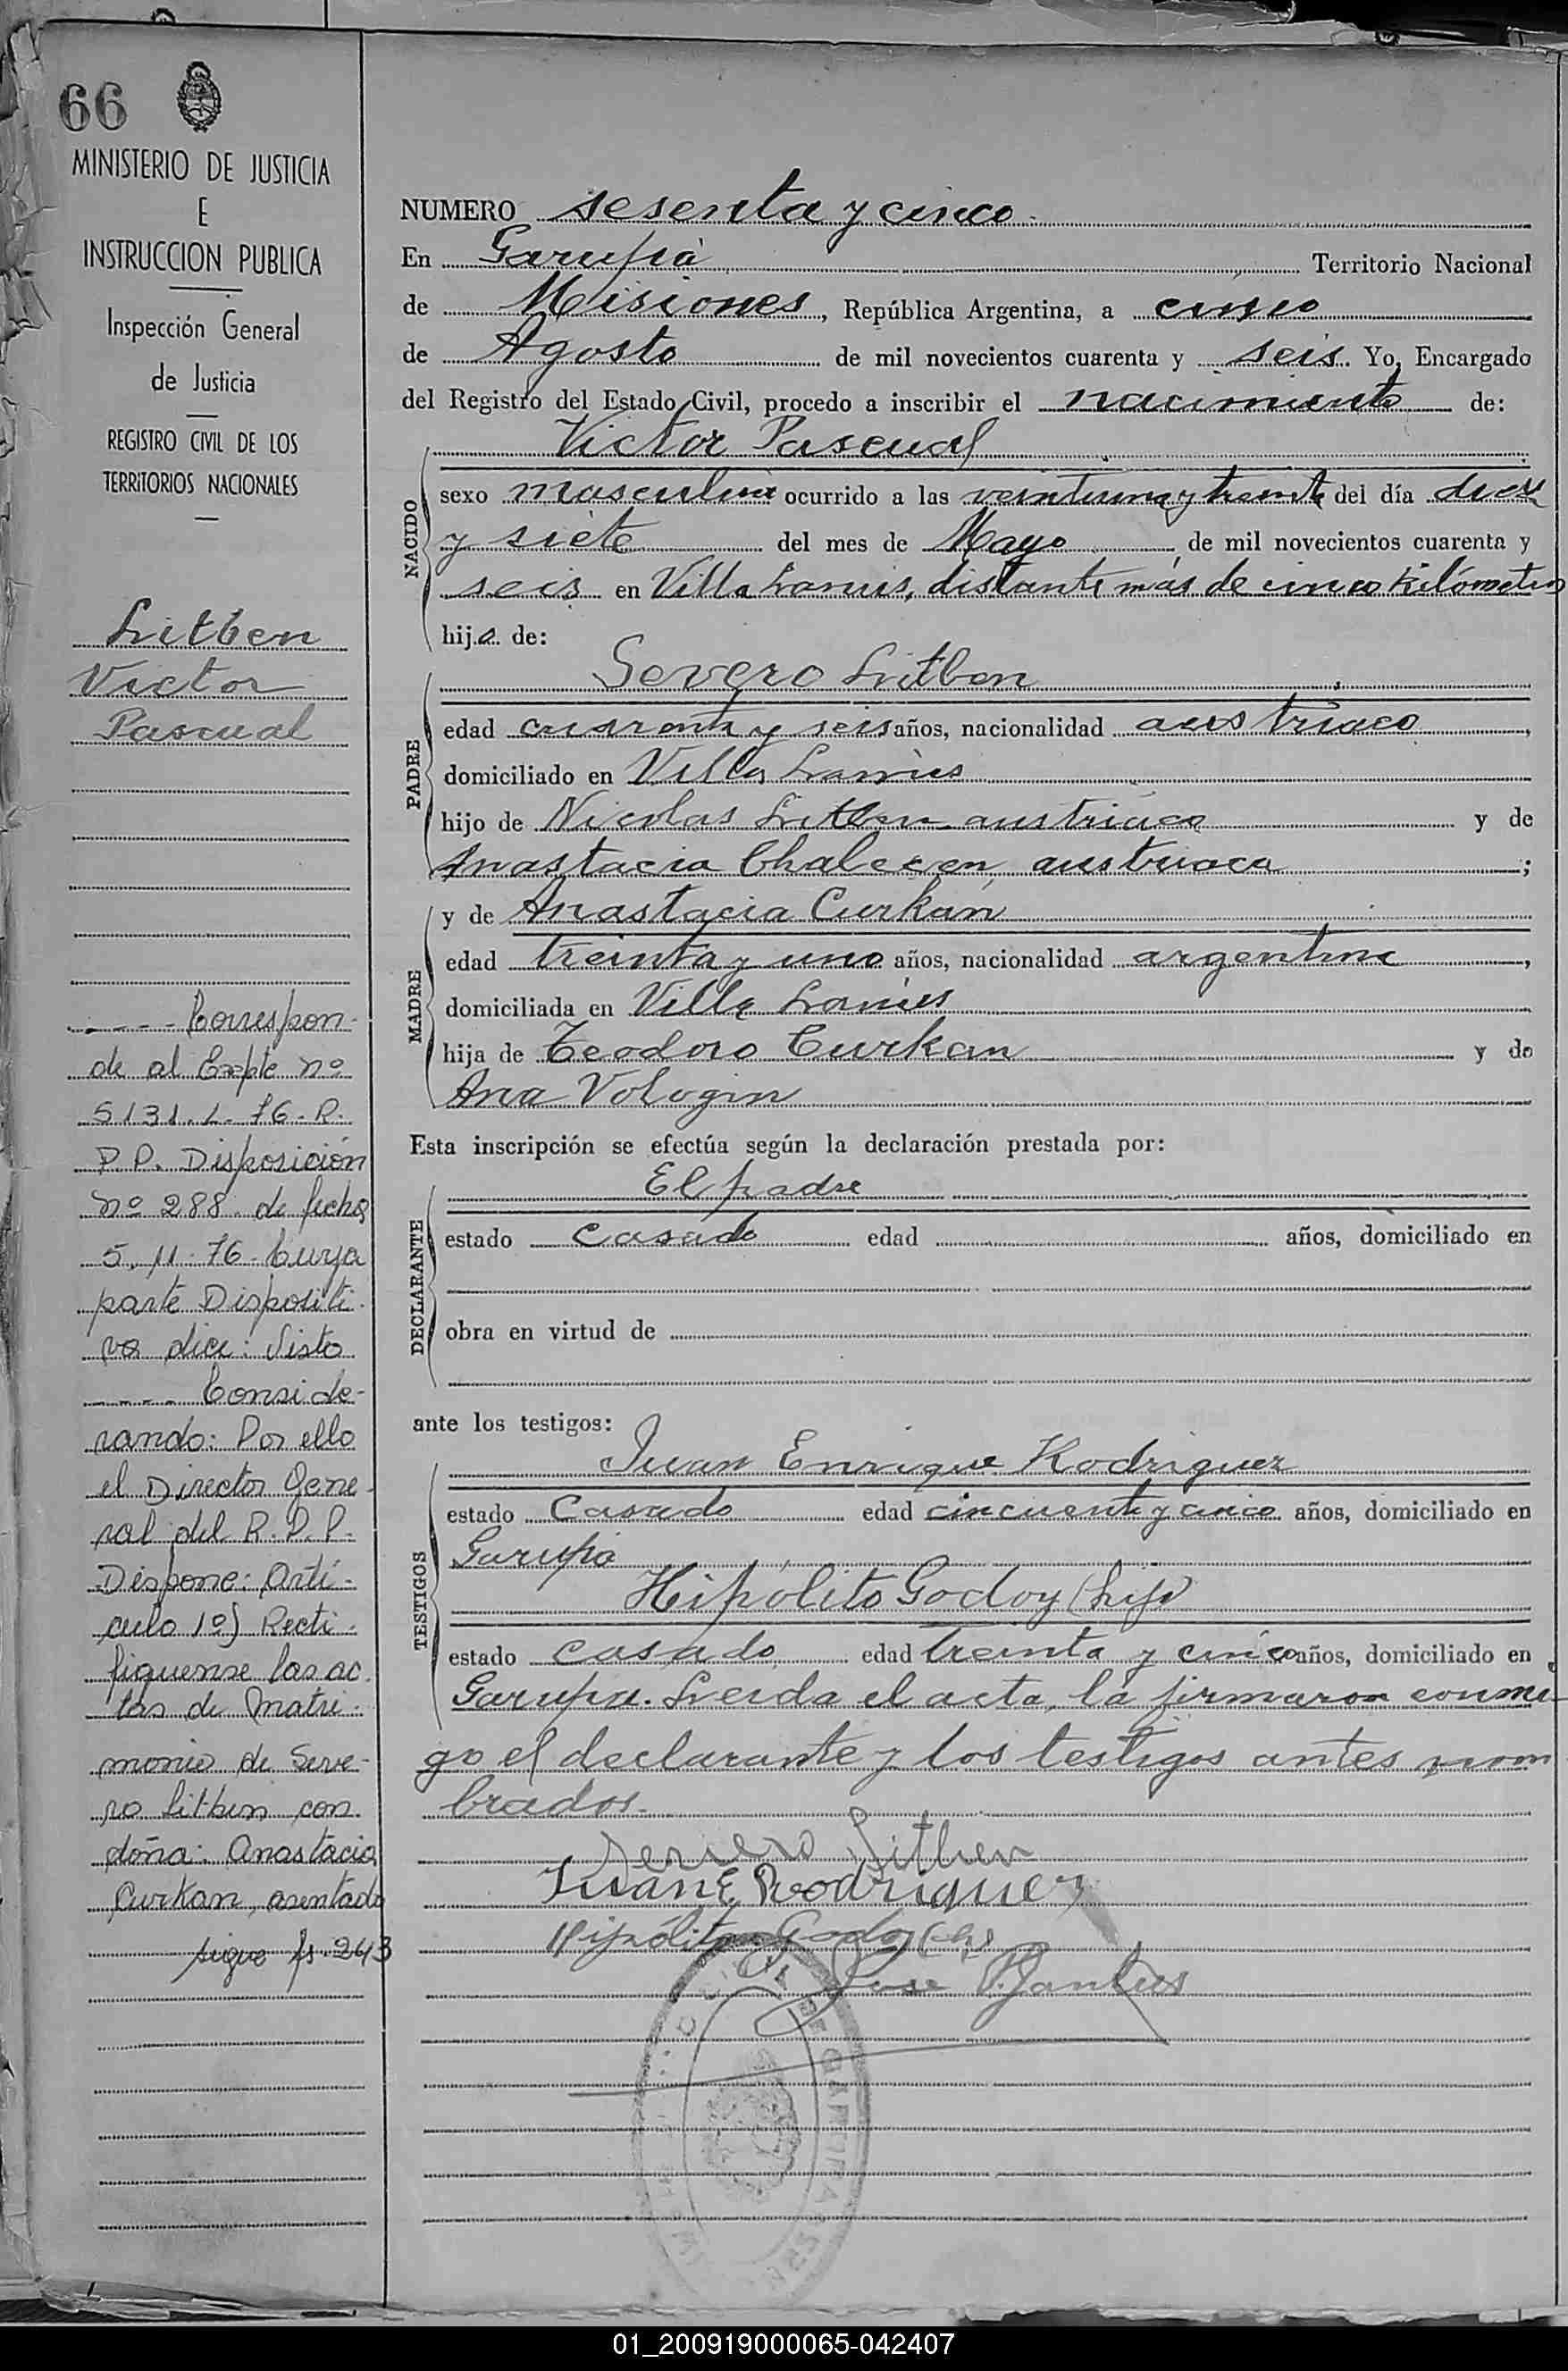 66
MINISTERIO DE JUSTICIA
E
INSTRUCCION PUBLICA
Inspección General
de Justicia
REGISTRO CIVIL DE LOS
TERRITORIOS NACIONALES
Litben
Victor
Pascual
- - - - Correspon-
de al Expte nº
5131.L-76-R.
P.P. Disposición
nº 288. de fecha
5.11.76. Cuya
parte Dispositi-
va dice: Visto
- - - - Conside-
rando: Por ello
el Director Gene-
ral del R.P.P.
Dispone: Arti-
culo 1º) Recti-
fiquense las ac-
tas de Matri-
monio de Seve-
ro Litbin con
doña: Anastacia
Curkan, asentada
sigue fs. 243
NUMERO sesenta y cinco
En Garupá Territorio Nacional
de Misiones, República Argentina, a cinco
de Agosto de mil novecientos cuarenta y seis. Yo, Encargado
del Registro del Estado Civil, procedo a inscribir el nacimiento de:
Victor Pascual
NACIDO
sexo masculino ocurrido a las veintiuna y treinta del día diez
y siete del mes de Mayo de mil novecientos cuarenta y
seis en Villa Lanús, distante más de cinco kilómetros
hijo de:
Severo Litben
PADRE
edad cuarenta y seis años, nacionalidad austriaco,
domiciliado en Villa Lanús
hijo de Nicolas Litben austriaco y de
Anastacia Chalecen, austriaca;
MADRE
y de Anastacia Curkan
edad treinta y uno años, nacionalidad argentina,
domiciliada en Villa Lanús
hija de Teodoro Curkan y de
Ana Vologin
Esta inscripción se efectúa según la declaración prestada por:
El padre
DECLARANTE
estado Casado edad años, domiciliado en
obra en virtud de
ante los testigos:
Juan Enrique Rodriguez
TESTIGOS
estado Casado edad cincuenta y cinco años, domiciliado en
Garupá
Hipólito Godoy (hijo)
estado casado edad treinta y cinco años, domiciliado en
Garupá. Leida el acta, la firmaron conmi-
go el declarante y los testigos antes nom
brados.
Severo Litben
Juan E Rodriguez
Hipólito Godoy (h)
Jose
01_200919000065-042407